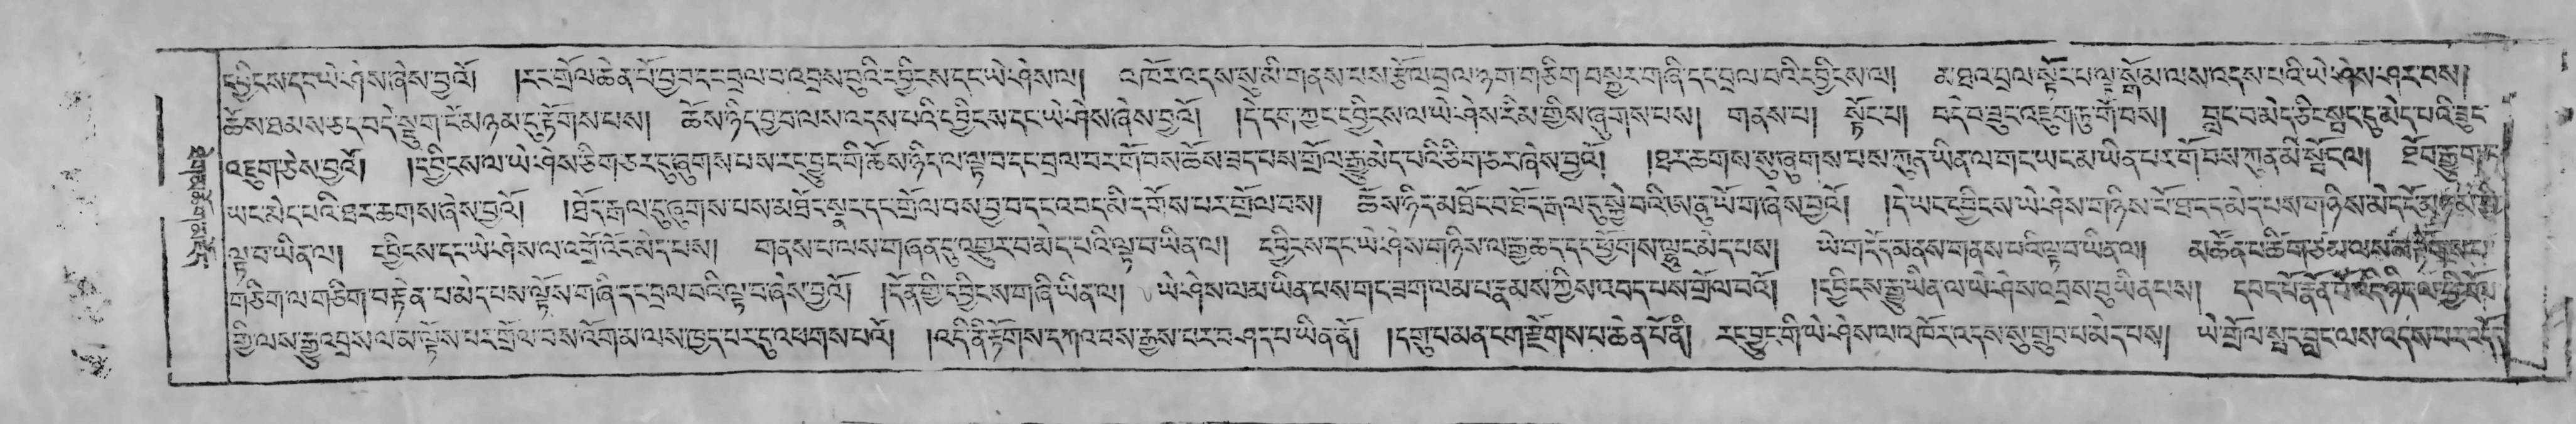 དབྱིངས་དང་ཡེ་ཤེས་ཞེས་བྱའོ། །རང་གྲོལ་ཆེན་པོ་བྱ་བ་དང་བྲལ་བ་འབྲས་བུའི་དབྱིངས་དང་ཡེ་ཤེས་ལ། འཁོར་འདས་སུ་མི་གནས་པས་རྩོལ་བྲལ་ཉག་གཅིག་བསྒྱུར་གཞི་དང་བྲལ་བའི་དབྱིངས་ལ། མཐའ་བྲལ་སྟོང་པ་ལྟ་སྒོམ་ལས་འདས་པའི་ཡེ་ཤེས་ཤར་བས།
ཆོས་ཐམས་ཅད་བདེ་སྡུག་ངོ་མཉམ་དུ་རྟོགས་པས། ཆོས་ཉིད་བྱ་བ་ལས་འདས་པའི་དབྱིངས་དང་ཡེ་ཤེས་ཞེས་བྱའོ། །དེ་དག་ཀྱང་དབྱིངས་ལ་ཡེ་ཤེས་རིམ་གྱིས་ཞུགས་པས། གནས་པ། སྟོང་པ། བདེ་བ་ཟུང་འཇུག་ཏུ་གོ་བས། བླང་བ་མེད་ཅིང་སྤང་དུ་མེད་པའི་ཟུང་
འཇུག་ཅེས་བྱའོ། །དབྱིངས་ལ་ཡེ་ཤེས་ཅིག་ཅར་དུ་ཞུགས་པས་རང་བྱུང་གི་ཆོས་ཉིད་ལ་ལྟ་བ་དང་བྲལ་བར་གོ་བས་ཆོས་ཟད་པས་གྲོལ་རྒྱུ་མེད་པའི་ཅིག་ཅར་ཞེས་བྱའོ། །ཐར་ཆགས་སུ་ཞུགས་པས་ཀུན་ཡིན་ལ་གང་ཡང་མ་ཡིན་པར་གོ་བས་ཀུན་མི་སྤོང་ལ། ཐོབ་རྒྱུ་གང་
ཡང་མེད་པའི་ཐར་ཆགས་ཞེས་བྱའོ། །ཐོད་རྒལ་དུ་ཞུགས་པས་མཐོང་སྣང་དང་གྲོལ་བས་བྱ་བ་དང་འབད་མི་དགོས་པར་གྲོལ་བས། ཆོས་ཉིད་མཐོང་བ་ཐོད་རྒལ་དུ་སྐྱེ་བའི་ཨ་ནུ་ཡོ་ག་ཞེས་བྱའོ། །དེ་ཡང་དབྱིངས་ཡེ་ཤེས་གཉིས་ངོ་ཐ་དད་མེད་པས་གཉིས་མེད་
ལྟ་བ་ཡིན་ལ། དབྱིངས་དང་ཡེ་ཤེས་ལ་འགྲོ་འོང་མེད་པས། གནས་པ་ལས་གཞན་དུ་འགྱུར་བ་མེད་པའི་ལྟ་བ་ཡིན་ལ། དབྱིངས་དང་ཡེ་ཤེས་གཉིས་ལ་རྒྱ་ཆད་དང་ཕྱོགས་ལྷུང་མེད་པས། ཡེ་གདོད་མ་ནས་གནས་པའི་ལྟ་བ་ཡིན་ལ། མཚོན་པ་ཚིག་ཙམ་ལས་མ་རྟོགས་པ་
གཅིག་ལ་གཅིག་བརྟེན་པ་མེད་པས་ལྟོས་གཞི་དང་བྲལ་བའི་ལྟ་བ་ཞེས་བྱའོ། །དོན་གྱི་དབྱིངས་གཞི་ཡིན་ལ། ཡེ་ཤེས་ལམ་ཡིན་པས་གང་ཟག་ལམ་པ་རྣམས་ཀྱིས་འབད་པས་གྲོལ་བའོ། །དབྱིངས་རྒྱུ་ཡིན་ལ་ཡེ་ཤེས་འབྲས་བུ་ཡིན་པས། དབང་པོ་རྣོན་པོ་
ཀྱི་ལས་རྒྱུ་འབྲས་ལ་མ་ལྟོས་པར་གྲོལ་བས་འོག་མ་ལས་ཁྱད་པར་དུ་འཕགས་པའོ། །འདི་ནི་རྟོགས་དཀའ་བས་རྒྱས་པར་བཤད་པ་ཡིན་ནོ། །དགུ་པ་མན་ངག་རྫོགས་པ་ཆེན་པོ་ནི། རང་བྱུང་གི་ཡེ་ཤེས་ལ་འཁོར་འདས་སུ་གྲུབ་པ་མེད་པས། ཡེ་གྲོལ་སྤང་བླང་ལས་འདས་པར་འདོད་